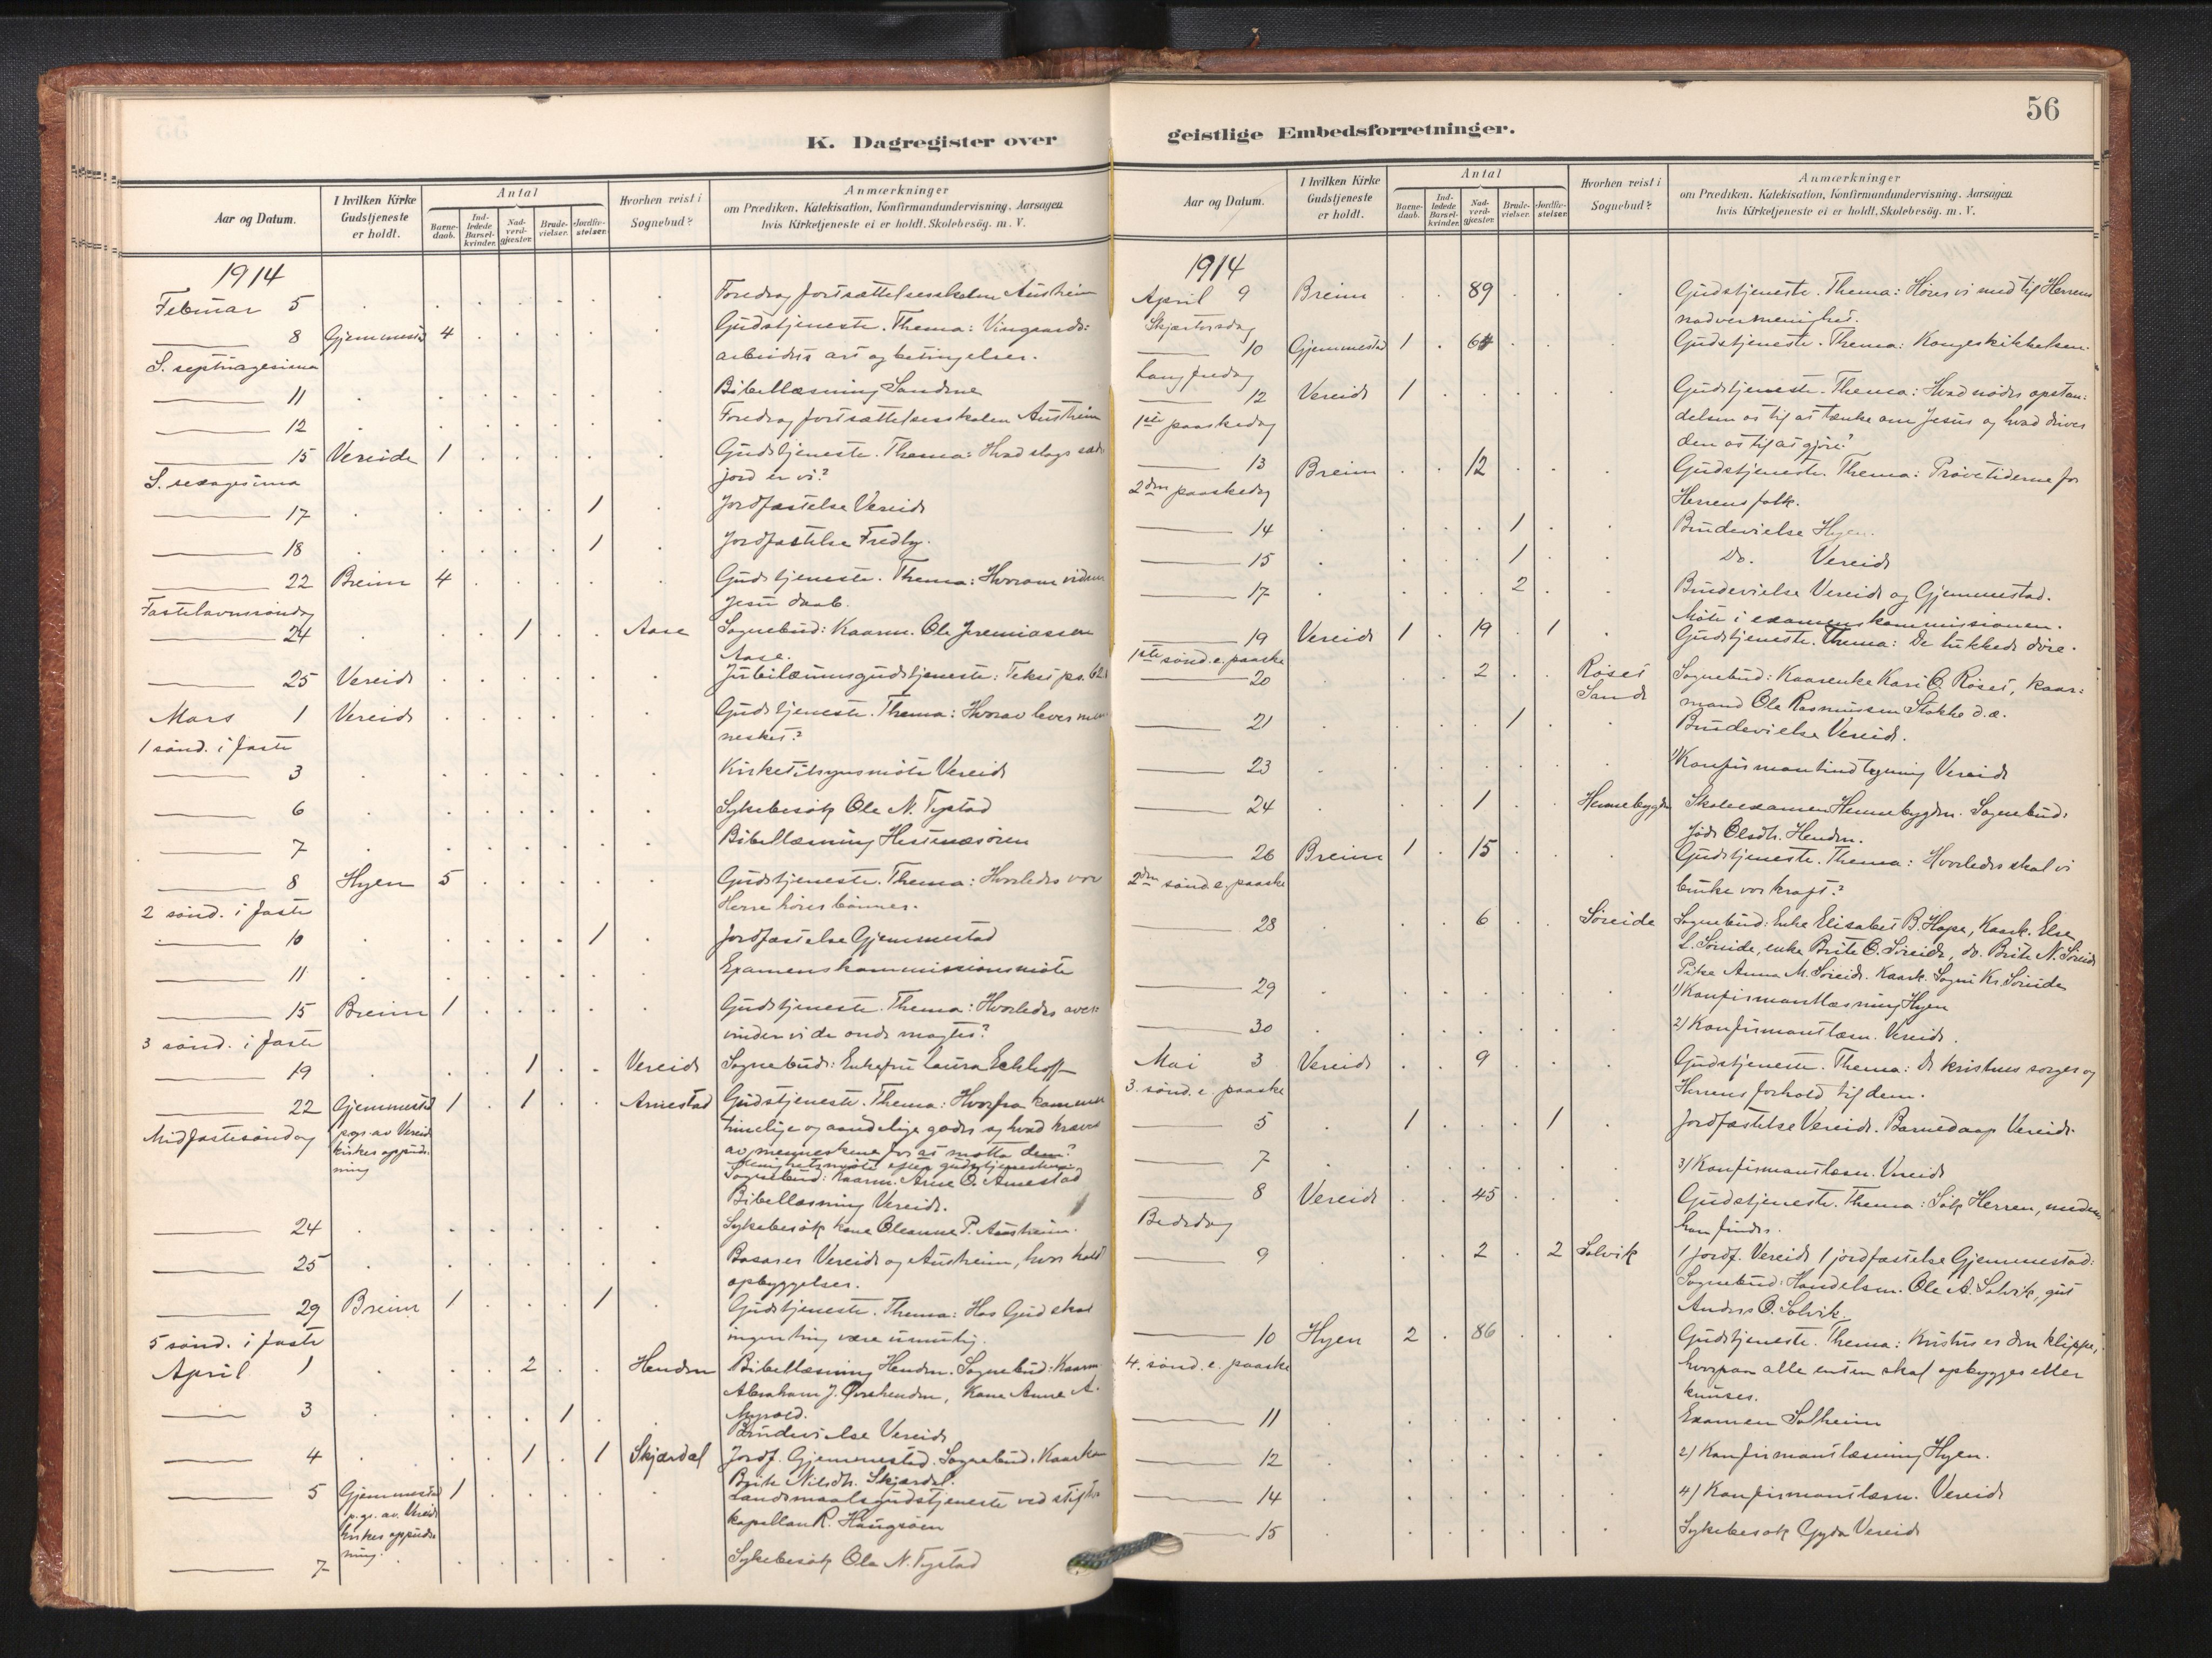 K. Dagregister over
Aar og Datum.
I hvilken Kirke Gudstjeneste er holdt.
Antal
Barnedaab.
Indledede Barselkvinder.
Nadverdgjæster.
Brudevielser.
Jordfæstelser.
Hvorhen reist i Sognebud?
Anmærkninger
om Prædiken, Katekisation, Konfirmandundervisning, Aarsagen
hvis Kirketjeneste ei er holdt, Skolebesøg. m. V.
1914
Februar 5 Foredrag fortsættelsesskolen Austheim
8 Gjemmestad 4 Gudstjeneste. Thema: Vingaards:
S. septuagesima arbeidets art og betingelser.
11 Bibellæsning Sandene
12 Foredrag fortsættelsesskolen Austheim
15 Vereide 1 Gudstjeneste. Thema: Hvad slags sæde
S. sexagesima jord er vi?
17 1 Jordfæstelse Vereide
18 1 Jordfæstelse Fredly.
22 Breim 4 Gudstjeneste. Thema: Hvorom vidner
Fastelavnssøndag Jesu daab.
24 1 Aase Sognebud: Kaarm. Ole Jeremiassen
Aase.
25 Vereide Jubilæumsgudstjeneste: Tekst ps. 62
Mars 1 Vereide Gudstjeneste. Thema: Hvorav lever men
1 sønd. i faste nesket?
3 Kirketilsynsmøte Vereide
6 Sykebesøk Ole N. Tystad
7 Bibellæsning Hestenesøren
8 Hyen 5 Gudstjeneste. Thema: Hvorledes vor
2 sønd. i faste Herre hører bønner.
10 1 Jordfæstelse Gjemmestad
11 Examenskommissionsmøte
15 Breim 1 Gudstjeneste. Thema: Hvorledes over:
3 sønd. i faste vinder vi de onde magter?
19 1 Vereide Sognebud: Enkefru Laura Eckhoff
22 Gjemmestad 1 1 Arnestad Gudstjeneste. Thema: Hvorfra kommer
Midfastesøndag pgr. av Vereide timelige og aandelige goder og hvad kræves
kirkes oppuds: av menneskene for at motta dem?
ning Menighetsmøte efter gudstjenesten
Sognebud: Kaarm. Arne O. Arnestad
Bibellæsning Vereide.
24 Sykebesøk kone Oleanne P. Austheim.
25 Basarer Vereide og Austheim, hvor holdt
opbyggelser.
29 Breim 1 1 Gudstjeneste. Thema: Hos Gud skal
5 sønd. i faste ingen ting være umulig.
April 1 2 Henden Bibellæsning Henden. Sognebud: Kaarm.
Abraham J. Øvrehenden, Kone Anne A.
Myrold.
3 1 Brudevielse Vereide
4 1 1 Skjærdal Jordf. Gjemmestad. Sognebud. Kaarkone
Brite Nilsdt. Skjærdal.
5 Gjemmestad 1 Landsmaalsgudstjeneste ved stifts
p.gr. av. Vereide kapellan R. Haugsøen
kirkes oppuds:
ning.
7 Sykebesøk Ole N. Tystad
56
geistlige Embedsforretninger.
Aar og Datum.
I hvilken Kirke Gudstjeneste er holdt.
Antal
Barnedaab.
Indledede Barselkvinder.
Nadverdgjæster.
Brudevielser.
Jordfæstelser.
Hvorhen reist i Sognebud?
Anmærkninger
om Prædiken, Katekisation, Konfirmandundervisning, Aarsagen
hvis Kirketjeneste ei er holdt, Skolebesøg. m. V.
1914
April 9 Breim 89 Gudstjeneste. Thema: Hører vi med til Herrens
Skjærtorsdag nadvermenighet.
10 Gjemmestad 1 64 Gudstjeneste. Thema: Kongeskikkelsen.
Langfredag
12 Vereide 1 Gudstjeneste. Thema: Hvad nøder opstan:
1ste paaskedag delsen os til at tænke om Jesus og hvad driver
den os til at gjøre?
13 Breim 12 Gudstjeneste. Thema: Prøvetiderne for
2den paaskedag Herrens folk.
14 1 Brudevielse Hyen.
15 1 Do. Vereide
17 2 Brudevielse Vereide og Gjemmestad.
Møte i examenskommissionen.
19 Vereide 1 19 1 Gudstjeneste. Thema: De lukkede døre.
1ste sønd. e. paaske
20 2 Røset Sognebud: Kaarenke Kari O. Røset, kaar:
Sande mand Ole Rasmussen Stokke d.æ.
21 1 Brudevielse Vereide.
23 1) Konfirmantindtegning Vereide
24 1 Hennebygden Skoleexamen Hennebygden. Sognebud:
Olsdt. Henden.
26 Breim 1 15 Gudstjeneste. Thema: Hvorledes skal vi
2den sønd. e. paaske bruke vor kraft?
28 6 Søreide Sognebud: Enke Elisabet B. Hope, Kaark. Else
L. Søreide, enke Brite O. Søreide, do. Brite N. Søreide
Pike Anna M. Søreide. Kaark. Kr. Søreide
29 1) Konfirmantlæsning Hyen
30 2) Konfirmantlæsn. Vereide.
Mai 3 Vereide 9 Gudstjeneste. Thema: De kristnes sorger og
3. sønd. e. paaske Herrens forhold til dem.
5 1 1 Jordfæstelse Vereide. Barnedaap Vereide
7 3) Konfirmantlæsn. Vereide
8 Vereide 45 Gudstjeneste. Thema: Søk Herren, medens
Bededag han findes.
9 2 2 Solvik 1 jordf. Vereide 1 jordfæstelse Gjemmestad:
Sognebud: Handelsm. Ole A. Solvik, gut
Anders O. Solvik.
10 Hyen 2 86 Gudstjeneste. Thema: Kristus er den klippe,
4. sønd. e. paaske hvorpaa alle enten skal opbygges eller
knuses.
11 Examen Solheim
12 2) Konfirmantlæsning Hyen.
14 4) Konfirmantlæsn. Vereide
15 Sykebesøk Gyda Vereide